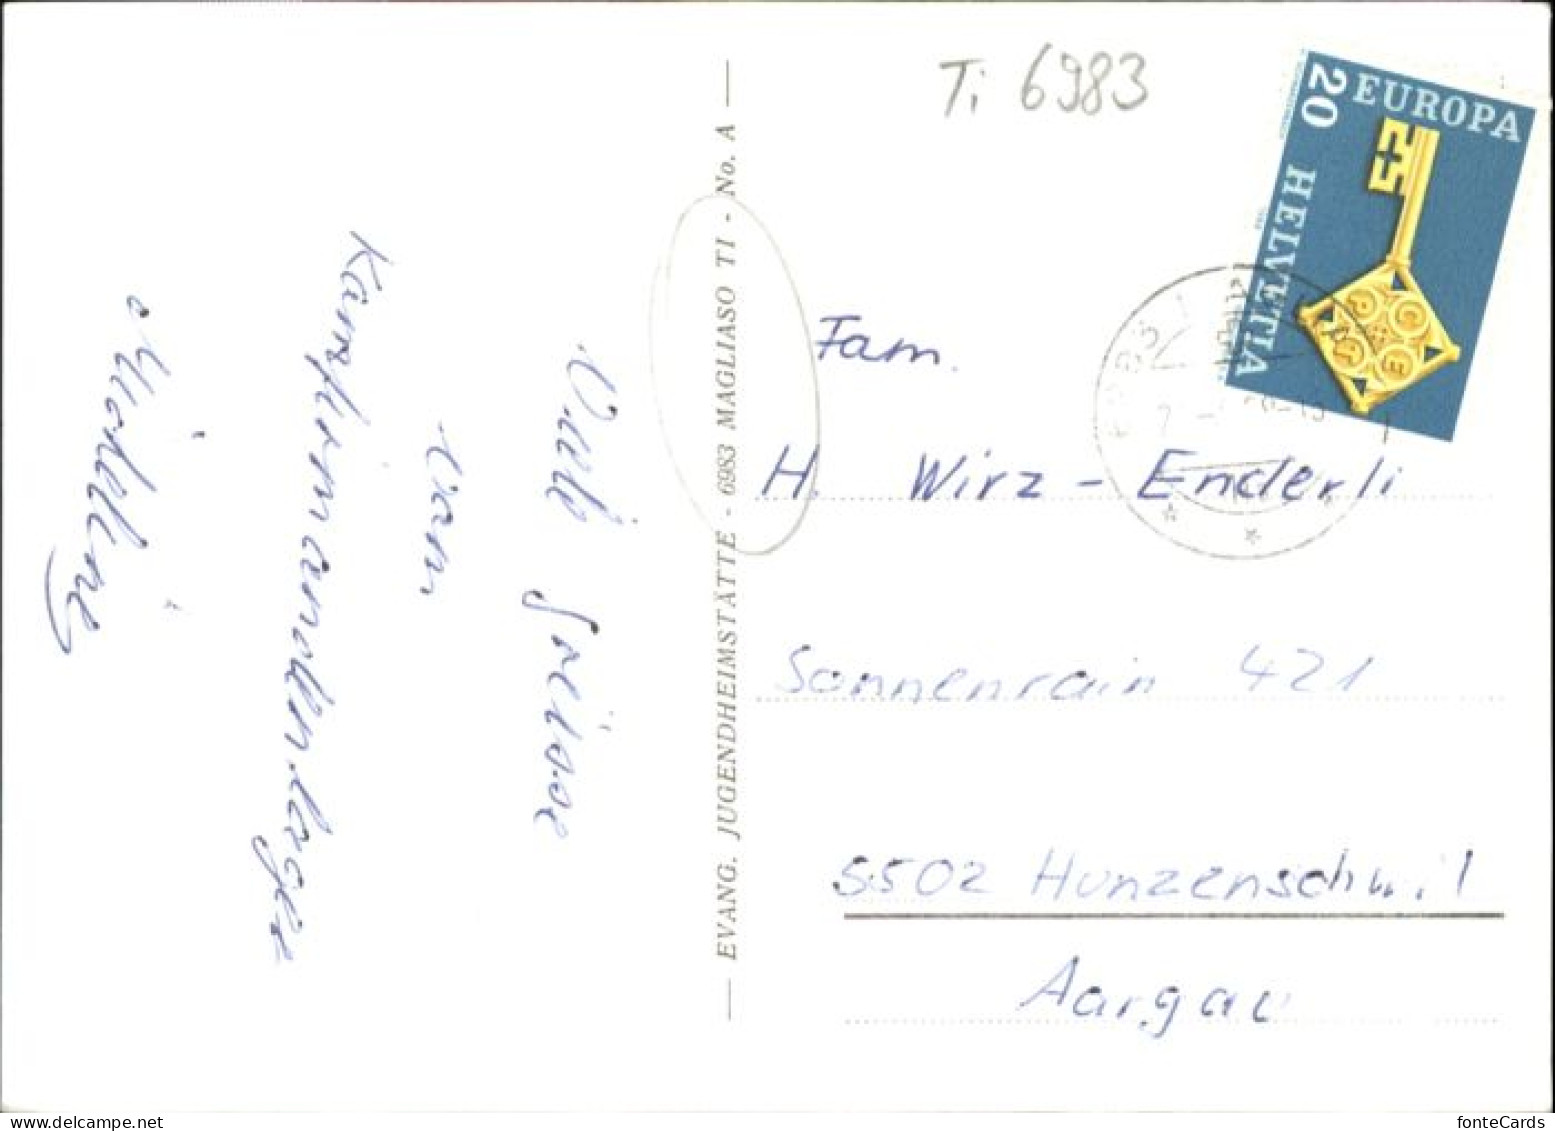 Viele Grüsse
vom
Konfirmandenlager
Madeleine
EVANG. JUGENDHEIMSTÄTTE - 6983 MAGLIASO TI - No. A
Ti 6983
EUROPA
20 HELVETIA
CEPT
6983
Fam.
H. Wirz - Enderli
Sonnenrain 421
5502 Hunzenschwil
Aargau
fonteCards